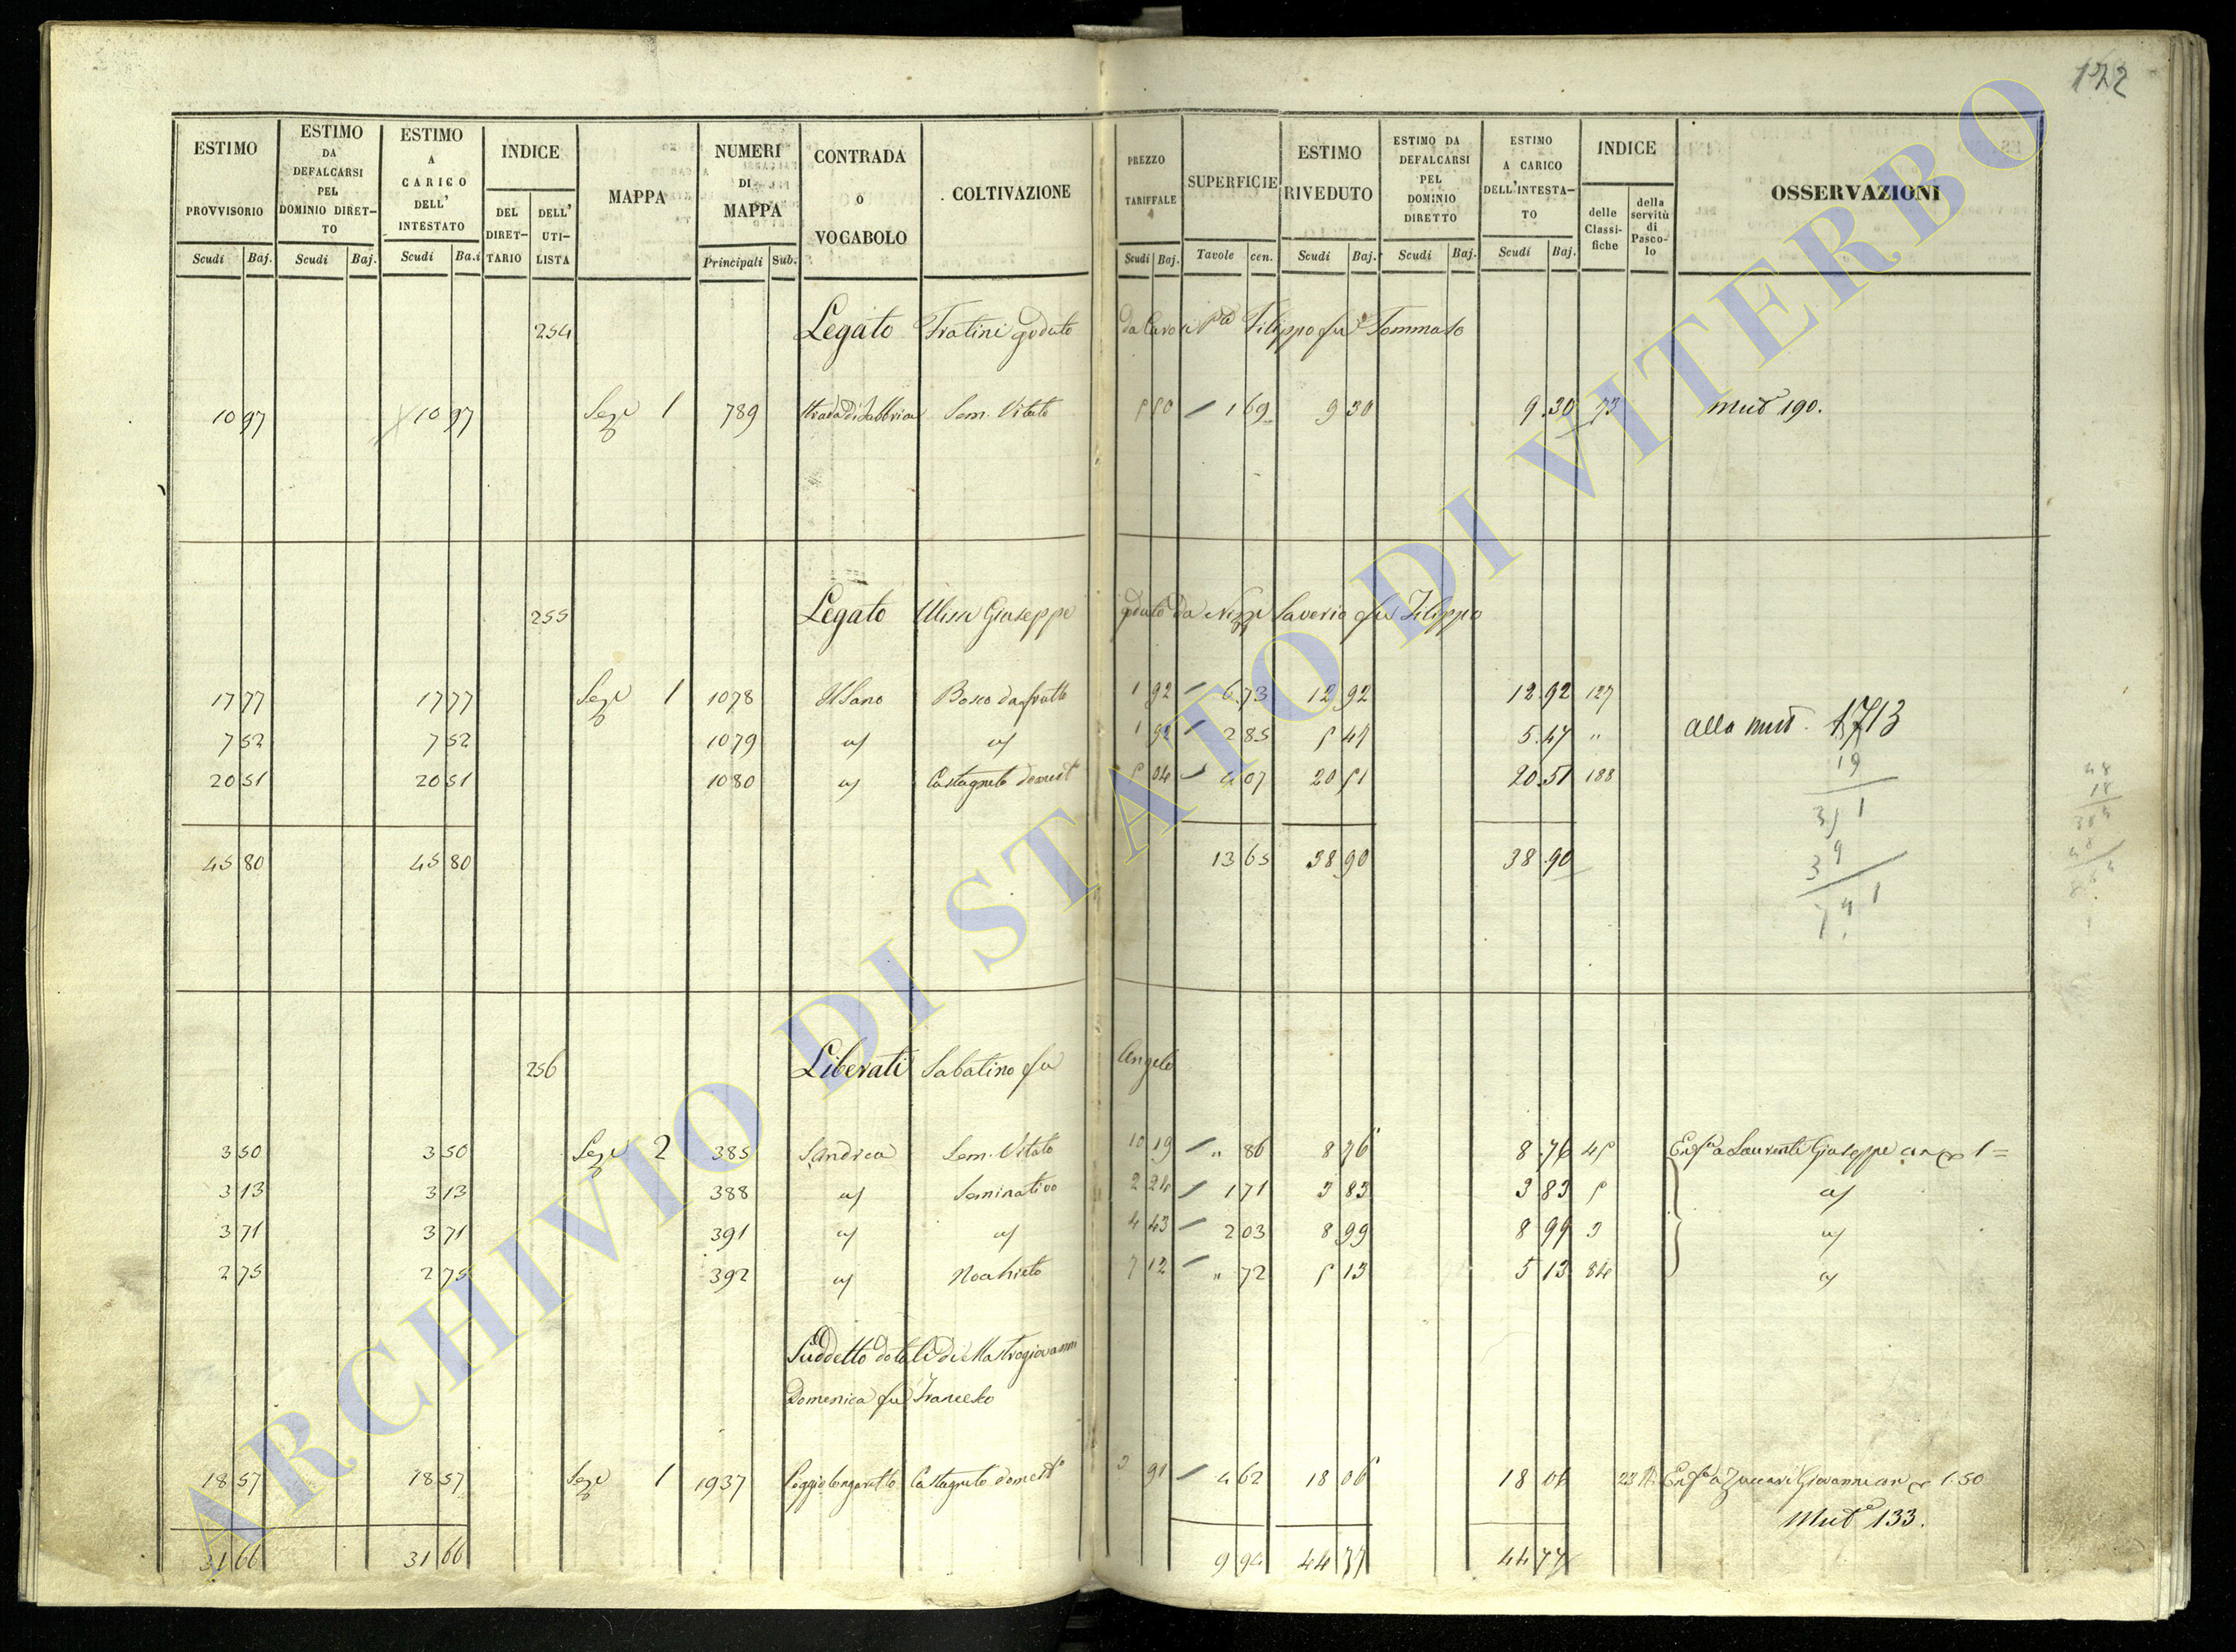 122
ESTIMO PROVVISORIO Scudi Baj.
ESTIMO DA DEFALCARSI PEL DOMINIO DIRETTO Scudi Baj.
ESTIMO A CARICO DELL' INTESTATO Scudi Ba.i
INDICE DEL DIRETTARIO DELL' UTILISTA
MAPPA
NUMERI DI MAPPA Principali Sub.
CONTRADA O VOCABOLO
COLTIVAZIONE
PREZZO TARIFFALE Scudi Baj.
SUPERFICIE Tavole cen.
ESTIMO RIVEDUTO Scudi Baj.
ESTIMO DA DEFALCARSI PEL DOMINIO DIRETTO Scudi Baj.
ESTIMO A CARICO DELL'INTESTATO Scudi Baj.
INDICE delle Classifiche della servitù di Pascolo
OSSERVAZIONI
254 Legato Fratini goduto da Filippo fu Tommaso
10 97 10 97 Sez.e 1 789 Strada di Fabbrica Sem. Vitato 5 50 1 69 9 30 9.30 73 Mut.e 190.
255 Legato Ulisse Giuseppe goduto da Nizzi Saverio fu Filippo
17 77 17 77 Sez.e 1 1078 Ulsano Bosco da frutto 1 92 6 73 12 92 12.92 127
7 52 7 52 1079 a/ a/ 1 92 2 85 5 47 5.47 "
alla mut. 1713
20 51 20 51 1080 a/ Castagneto domest.o 5 04 4 07 20 51 20.51 188
45 80 45 80 13 65 38 90 38.90
256 Liberati Sabatino fu Angelo
3 50 3 50 Sez.e 2 385 S. Andrea Sem. Vitato 10 19 " 86 8 76 8.76 45 Enf.a a Laurenti Giuseppe 1=
3 13 3 13 388 a/ Seminativo 2 24 1 71 3 83 3 83 5 a/
3 71 3 71 391 a/ a/ 4 43 2 03 8 99 8 99 3 a/
2 75 2 75 392 a/ Nocchieto 7 12 " 72 5 13 5 13 84 a/
Suddetto dotali di Mastrogiovanni
Domenica fu Francesco
18 57 18 57 Sez.e 1 1937 Poggio Castagneto domest.o 3 91 4 62 18 06 18 06 Enf.a a Zuccari Giovanni 1:50
Mut.e 133.
31 66 31 66 9 94 44 77 44 77
ARCHIVIO DI STATO DI VITERBO